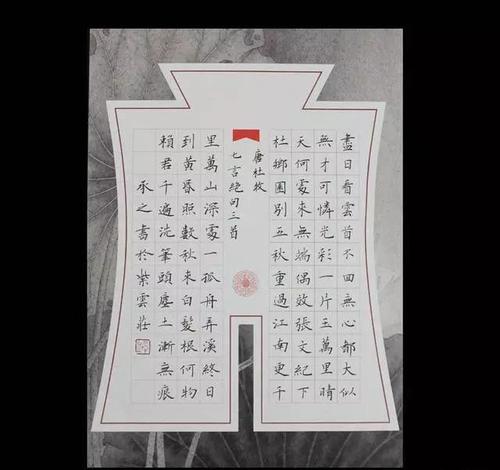 盡日看雲首不回無心都大似
無才可憐光彩一片玉萬里晴
天何處來無端偶效張文紀下
杜鄉園別五秋重過江南更千
唐杜牧
七言絕句三首
里萬山深處一孤舟弄溪終日
到黃昏照數秋來白髮根何物
賴君千遍洗筆頭塵土漸無痕
承之書於紫雲莊